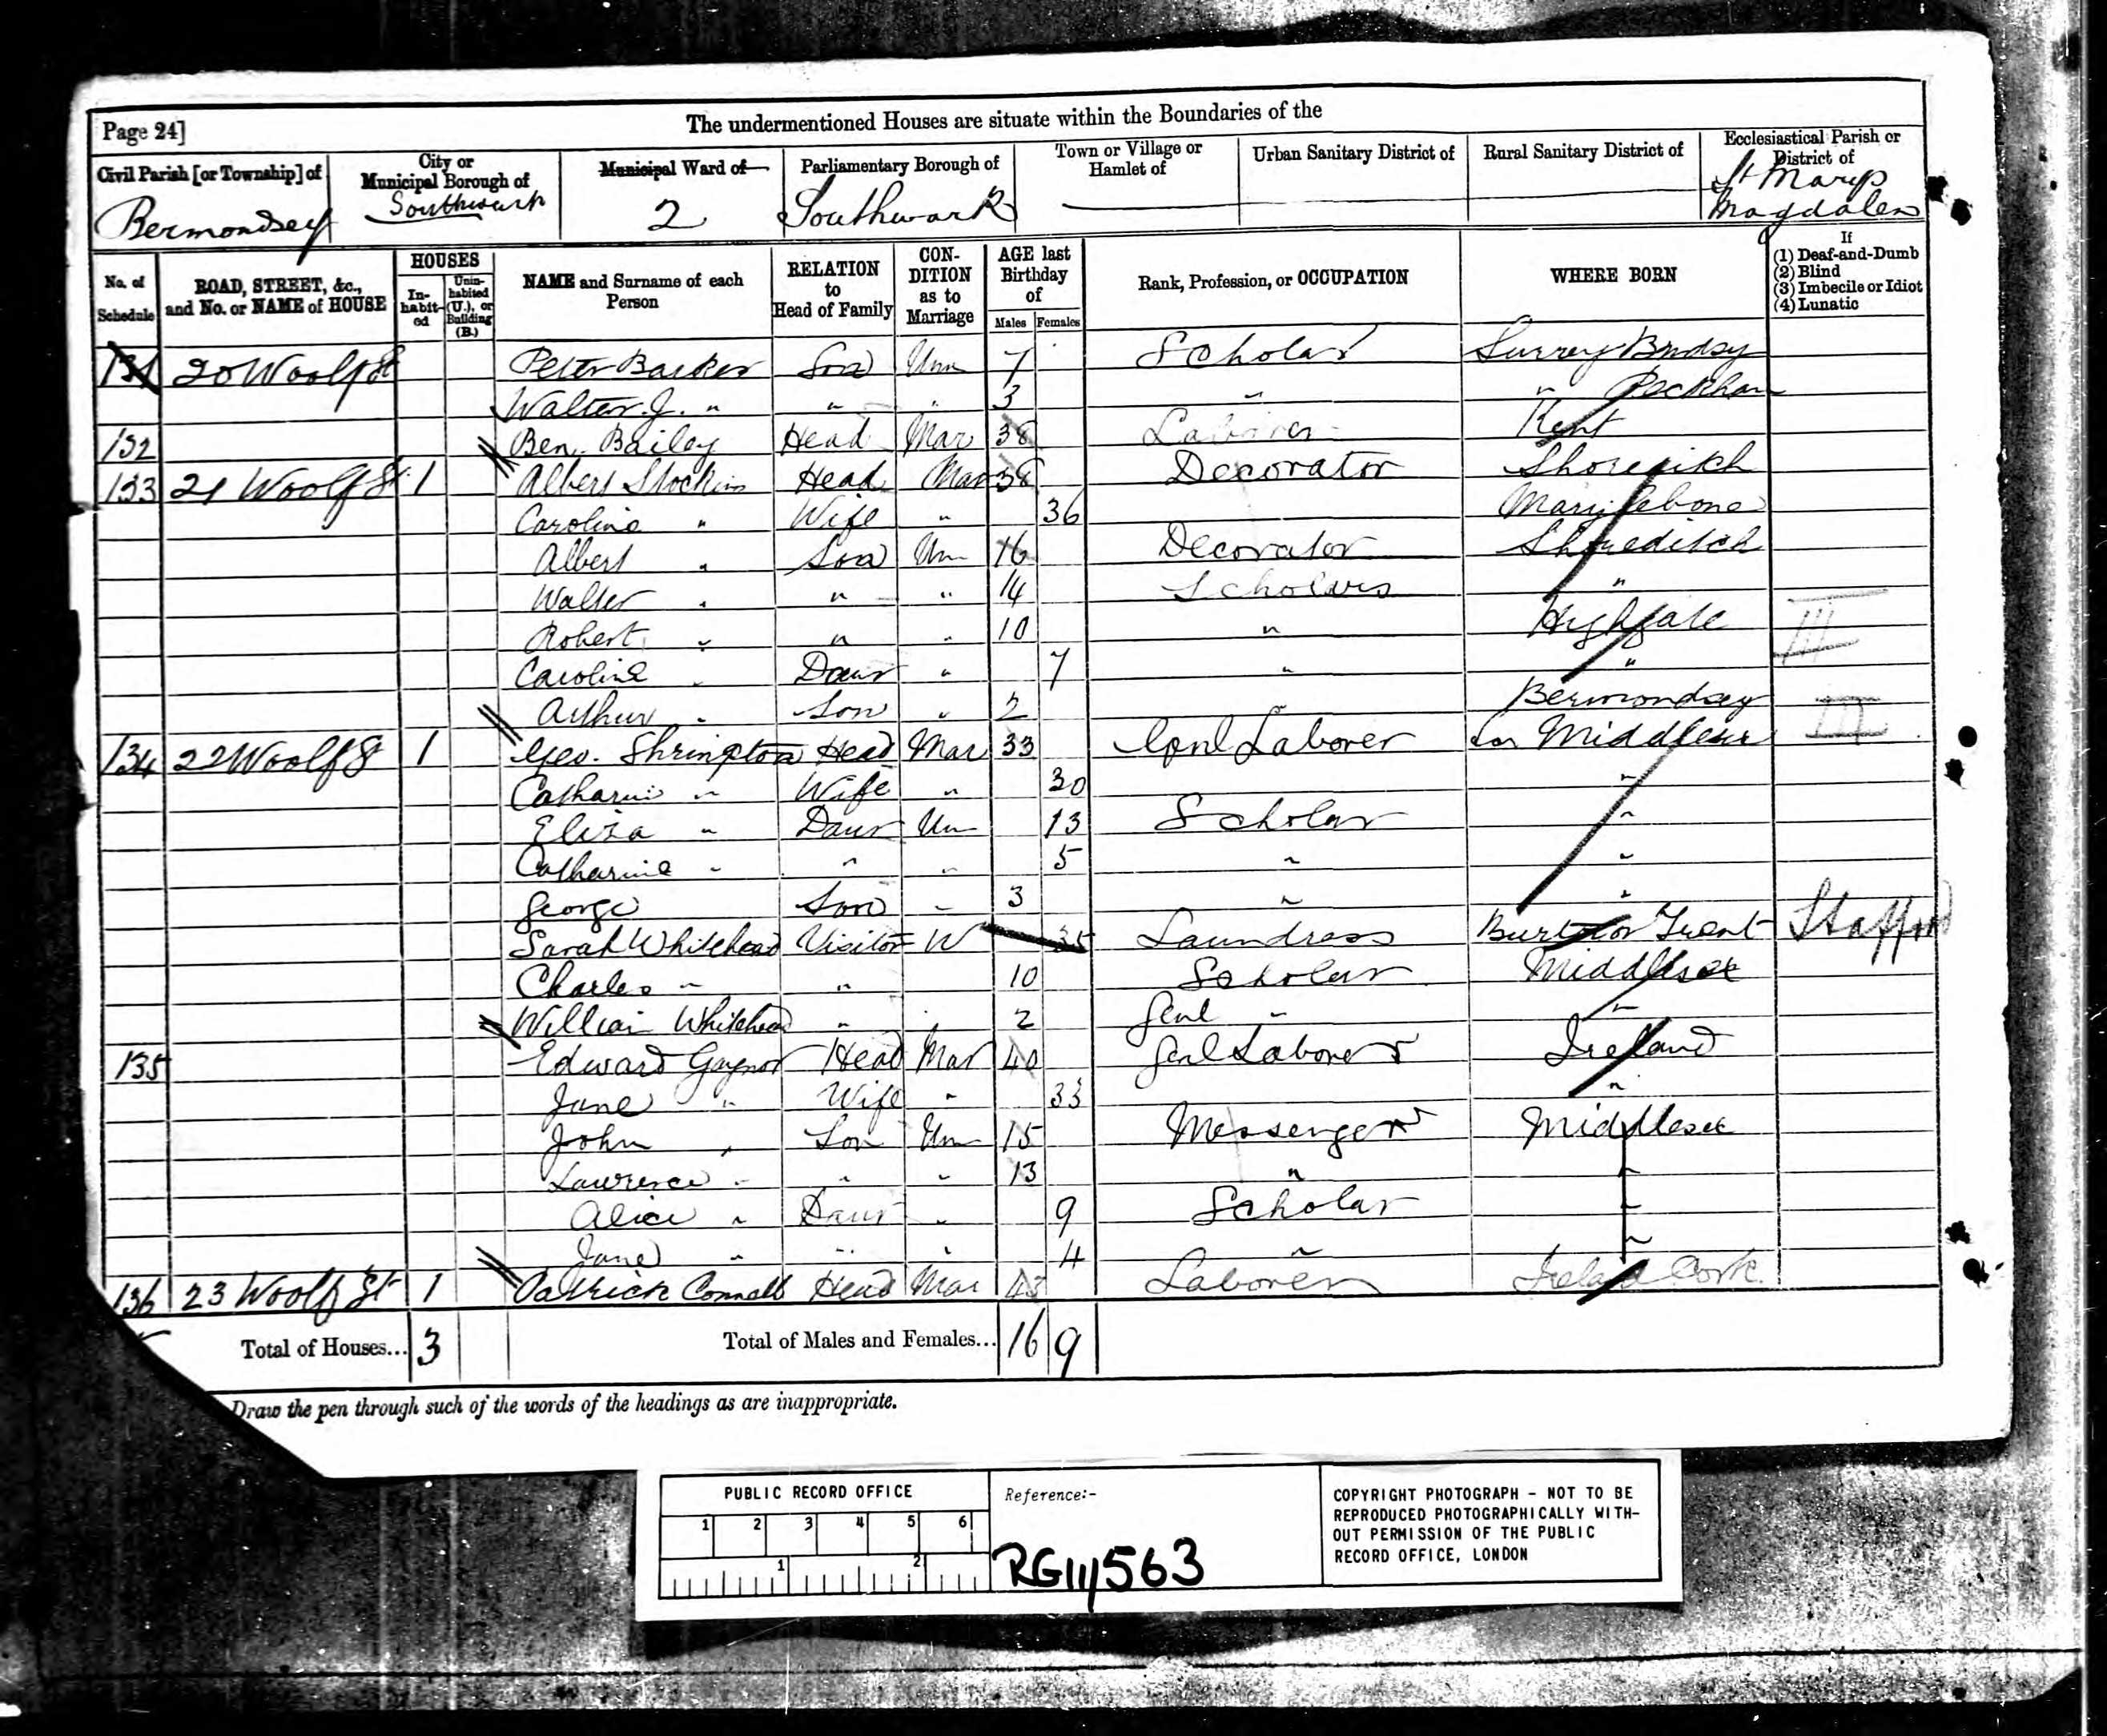 Page 24]
The undermentioned Houses are situate within the Boundaries of the
Civil Parish [or Township] of
City or Municipal Borough of
Municipal Ward of
Parliamentary Borough of
Town or Village or Hamlet of
Urban Sanitary District of
Rural Sanitary District of
Ecclesiastical Parish or District of
Bermondsey Southwark 2 Southwark St Marys Magdalen
No. of Schedule
ROAD, STREET, &c., and No. or NAME of HOUSE
HOUSES
In-habit-ed
Unin-habited (U.), or Building (B.)
NAME and Surname of each Person
RELATION to Head of Family
CON-DITION as to Marriage
AGE last Birthday of
Males Females
Rank, Profession, or OCCUPATION
WHERE BORN
If
(1) Deaf-and-Dumb
(2) Blind
(3) Imbecile or Idiot
(4) Lunatic
131 20 Woolf St Peter Barker Son Unm 7 Scholar Surrey Bmdsy
Walter J. " " " 3 " " Peckham
132 Ben. Bailey Head Mar 38 Laborer Kent
133 21 Woolf St 1 Albert Head Mar 38 Decorator
Caroline " Wife " 36 Marylebone
Albert " Son Un 16 Decorator Shoreditch
Walter " " " 14 Scholars "
Robert " " " 10 " Highgate
Caroline " Daur " 7 " "
Arthur " Son " 2 " Bermondsey
134 22 Woolf St 1 Geo. Shrimpton Head Mar 33 Genl Laborer Middlesex
Catharine " Wife " 30 "
Eliza " Daur Un 13 Scholar "
Catharine " " " 5 " "
George Son " 3 " "
Sarah Whitehead Visitor W 35 Laundress Burton Trent Stafford
Charles " " 10 Scholar Middlesex
William Whitehead " 2 Genl " "
135 Edward Gaynor Head Mar 40 Genl Laborer Ireland
Jane " Wife " 33 "
John " Son Un 15 Messenger Middlesex
Lawrence " " " 13 " "
Alice " Daur " 9 Scholar "
Jane " " " 4 " "
136 23 Woolf St 1 Patrick Connell Head Mar 43 Laborer Ireland Cork
Total of Houses... 3 Total of Males and Females... 16 9
Draw the pen through such of the words of the headings as are inappropriate.
PUBLIC RECORD OFFICE
1 2 3 4 5 6
1 2
Reference:-
RG11/563
COPYRIGHT PHOTOGRAPH - NOT TO BE
REPRODUCED PHOTOGRAPHICALLY WITH-
OUT PERMISSION OF THE PUBLIC
RECORD OFFICE, LONDON